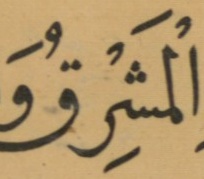 الْمَشْرِقُ وَ